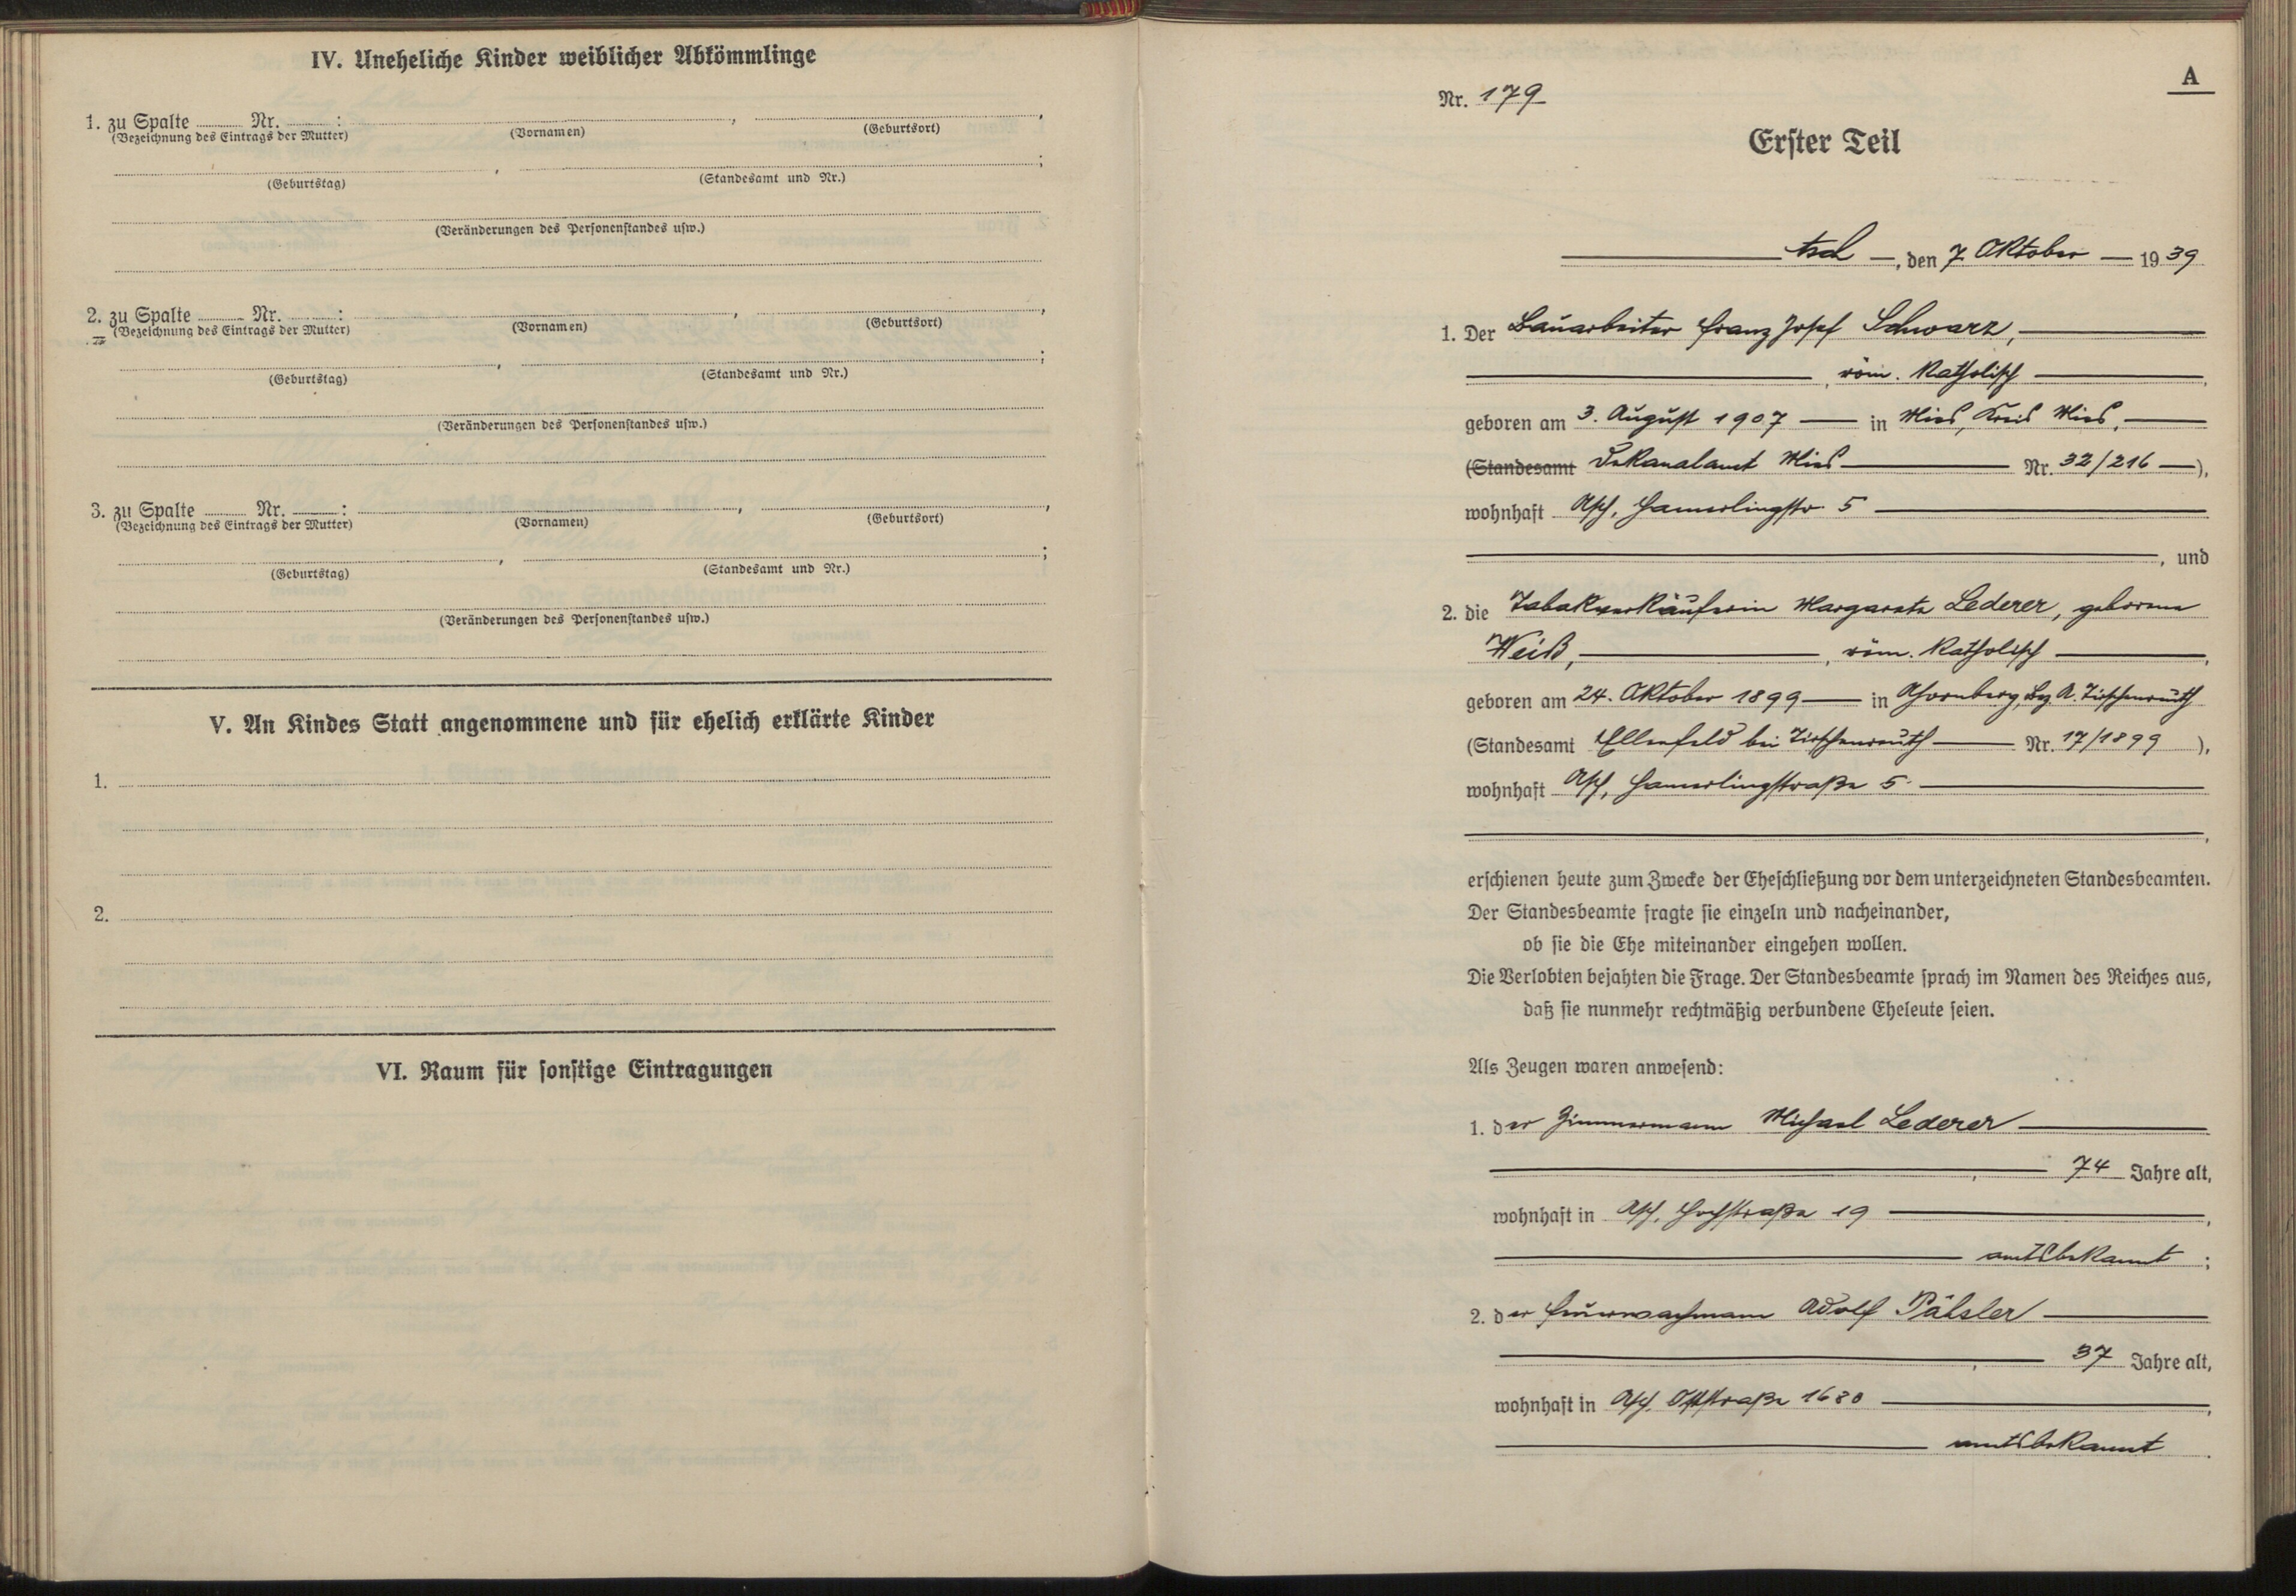 IV. Uneheliche Kinder weiblicher Abkömmlinge
1. zu Spalte ........ Nr. ........ : , ,
(Bezeichnung des Eintrags der Mutter) (Vornamen) (Geburtsort)
, ;
(Geburtstag) (Standesamt und Nr.)
(Veränderungen des Personenstandes usw.)
2. zu Spalte ........ Nr. ........ : , ,
(Bezeichnung des Eintrags der Mutter) (Vornamen) (Geburtsort)
, ;
(Geburtstag) (Standesamt und Nr.)
(Veränderungen des Personenstandes usw.)
3. zu Spalte ........ Nr. ........ : , ,
(Bezeichnung des Eintrags der Mutter) (Vornamen) (Geburtsort)
, ;
(Geburtstag) (Standesamt und Nr.)
(Veränderungen des Personenstandes usw.)
V. An Kindes Statt angenommene und für ehelich erklärte Kinder
1.
2.
VI. Raum für sonstige Eintragungen
A
Nr. 179
Erster Teil
Asch, den 7. Oktober 1939
1. Der Bauarbeiter Franz Josef Schwarz,
, röm. katholisch ,
geboren am 3. August 1907 in Mies, Kreis Mies,
(Standesamt Dekanalamt Mies Nr. 32/216 ),
wohnhaft Asch, Hamerlingstr. 5
, und
2. die Tabakverkäuferin Margareta Lederer, geborene
Weiß, , röm. katholisch ,
geboren am 24. Oktober 1899 in Ahornberg, Bz. A. Tirschenreuth
(Standesamt Ellenfeld bei Tirschenreuth Nr. 17/1899 ),
wohnhaft Asch, Hamerlingstraße 5.
,
erschienen heute zum Zwecke der Eheschließung vor dem unterzeichneten Standesbeamten.
Der Standesbeamte fragte sie einzeln und nacheinander,
ob sie die Ehe miteinander eingehen wollen.
Die Verlobten bejahten die Frage. Der Standesbeamte sprach im Namen des Reiches aus,
daß sie nunmehr rechtmäßig verbundene Eheleute seien.
Als Zeugen waren anwesend:
1. der Zimmermann Michael Lederer
, 74 Jahre alt,
wohnhaft in Asch, Hochstraße 19 ,
amtsbekannt ;
2. der Feuerwachmann Adolf
, 37 Jahre alt,
wohnhaft in Asch, 1680 ,
amtsbekannt .